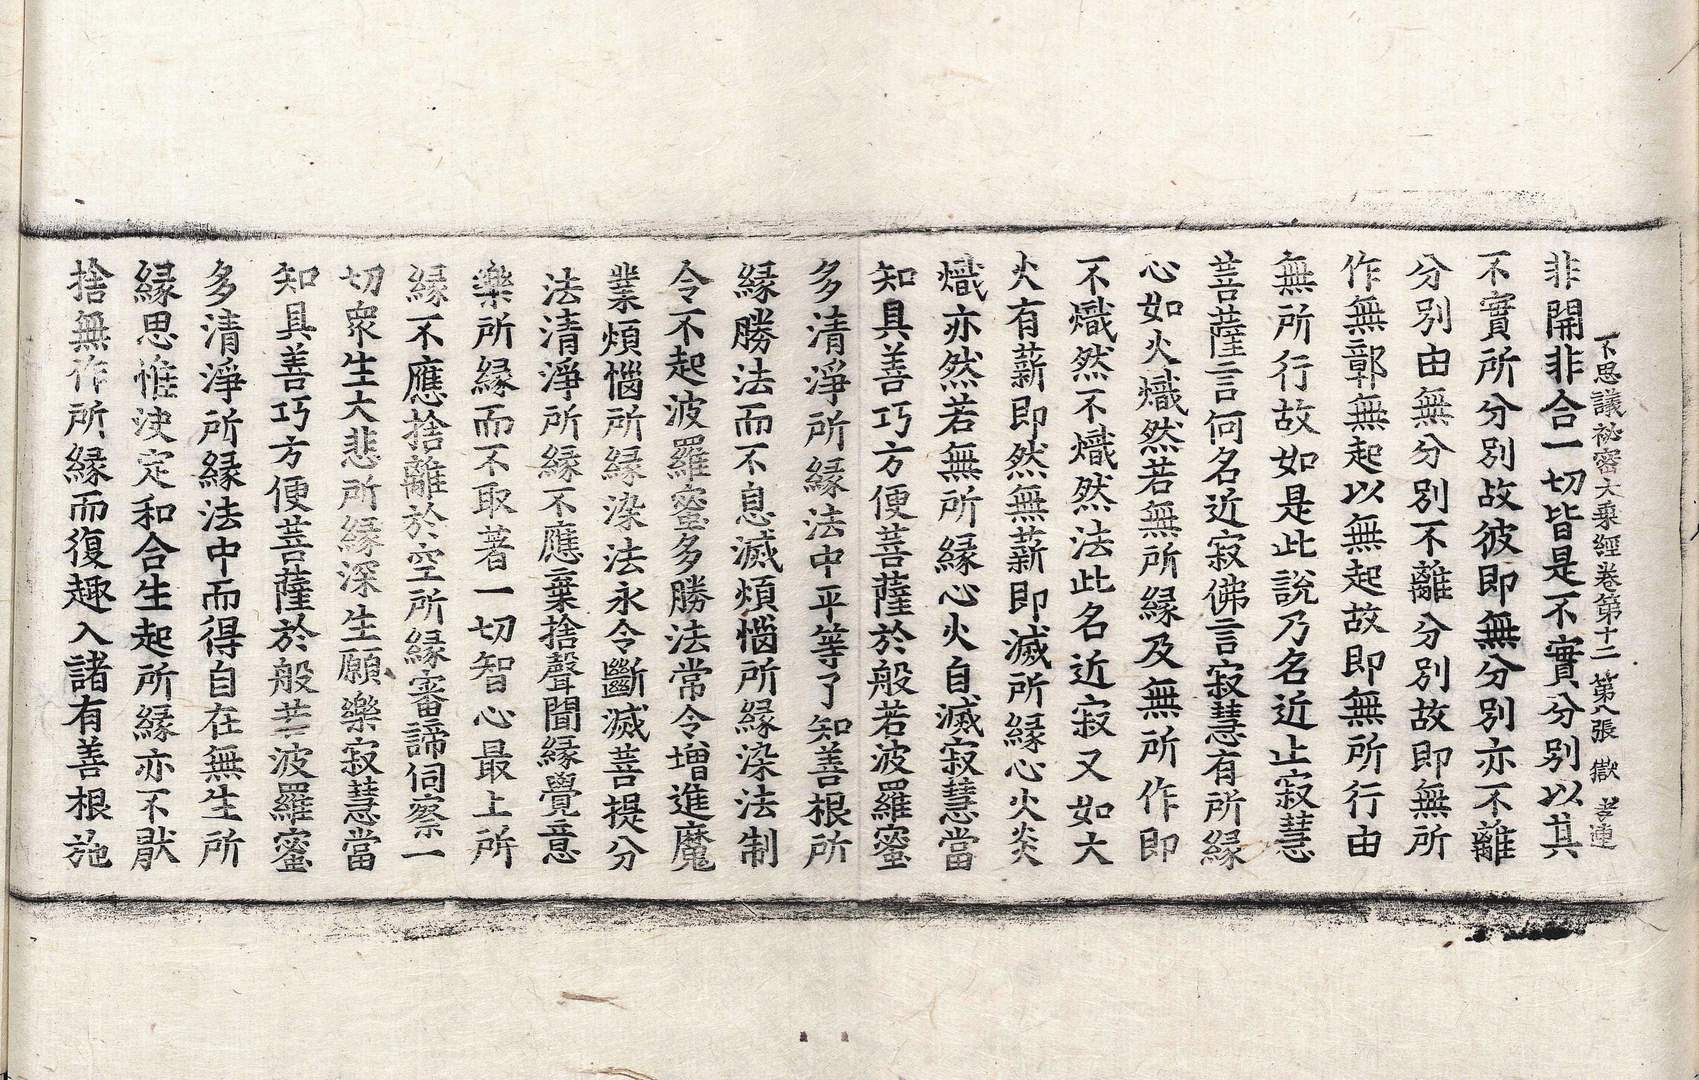 不思議祕密大乘經卷第十二 第八張 獄 孝連
非開非合一切皆是不實分別以其
不實所分別故彼即無分別亦不離
分別由無分別不離分別故即無所
作無鄣無起以無起故即無所行由
無所行故如是此說乃名近止寂慧
菩薩言何名近寂佛言寂慧有所緣
心如火熾然若無所緣及無所作即
不熾然不熾然法此名近寂又如大
火有薪即然無薪即滅所緣心火炎
熾亦然若無所緣心火自滅寂慧當
知具善巧方便菩薩於般若波羅蜜
多清淨所緣法中平等了知善根所
緣勝法而不息滅煩惱所緣染法制
令不起波羅蜜多勝法常令增進魔
業煩惱所緣染法永令斷滅菩提分
法清淨所緣不應棄捨聲聞緣覺意
樂所緣而不取著一切智心最上所
緣不應捨離於空所緣審諦伺察一
切衆生大悲所緣深生願樂寂慧當
知具善巧方便菩薩於般若波羅蜜
多清淨所緣法中而得自在無生所
緣思惟決定和合生起所緣亦不猒
捨無作所緣而復趣入諸有善根施